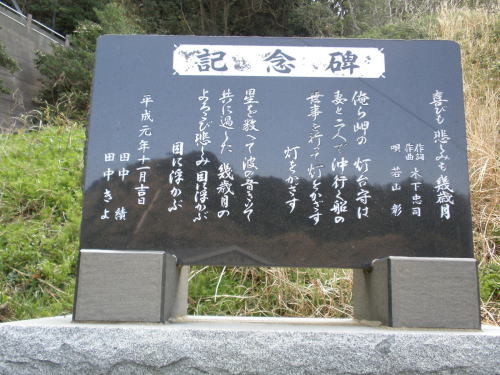 記念碑
喜びも悲しみも幾歳月
作詞
作曲 木下忠司
唄 若山 彰
俺ら岬の 灯台守は
妻と二人で沖行く船の
無事を祈って灯をかざす
灯をかざす
星を数へて波の音きいて
共に過した幾歳月の
よろこび悲しみ目に浮かぶ
目に浮かぶ
平成元年十一月吉日
田中 績
田中 きよ